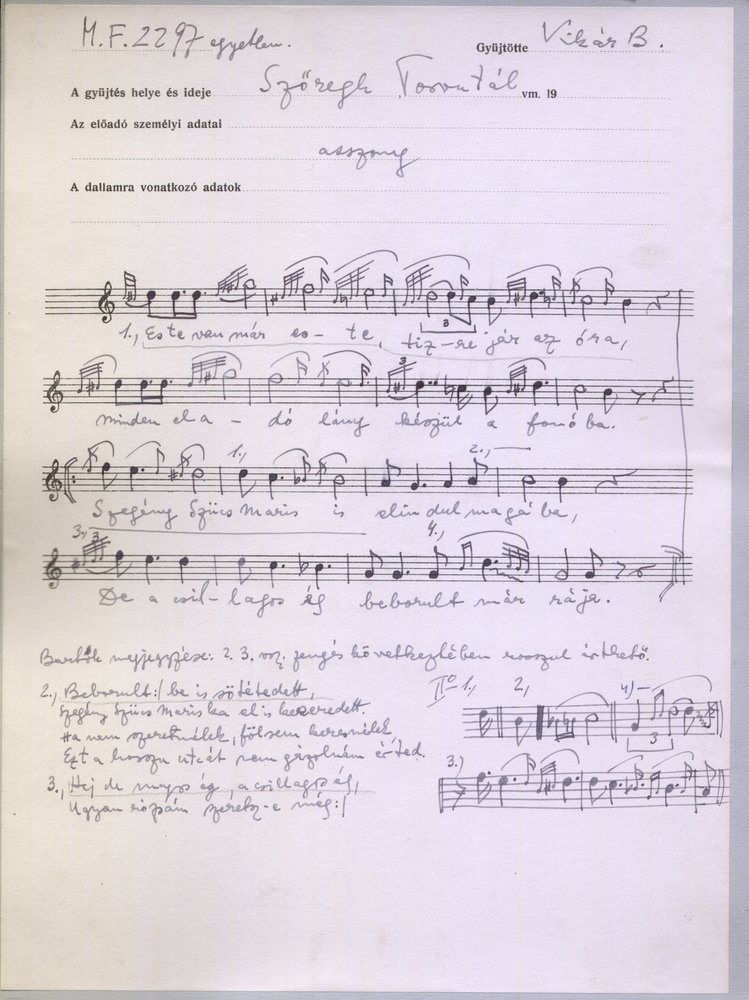 M.F. 2297 egyetlen.
Gyüjtötte Vikár B.
A gyüjtés helye és ideje Szőregh Torontál vm. 19
Az előadó személyi adatai
asszony
A dallamra vonatkozó adatok
3
1., Este van már es- te, tiz-re jár az óra,
3
minden ela - dó lány készül a fonóba.
1., 2.,
Szegény Szücs Maris is elindul magába,
3., 3 4.,
De a csil-lagos ég beborult már rája.
Bartók megjegyzése: 2. 3. vsz. zengés következtében rosszul érthető.
2., Beborult :/ be is sötétedett,
Szegény Szücs Mariska el is keseredett.
Ha nem szeretnélek, fölsem keresnélek
Ezt a hosszu utcát nem gázolnám érted.
3., Hej de magos ég, a csillagos ég,
Ugyan rózsám szeretsz-e még :/
IIº 1., 2, 4)
3
3.)